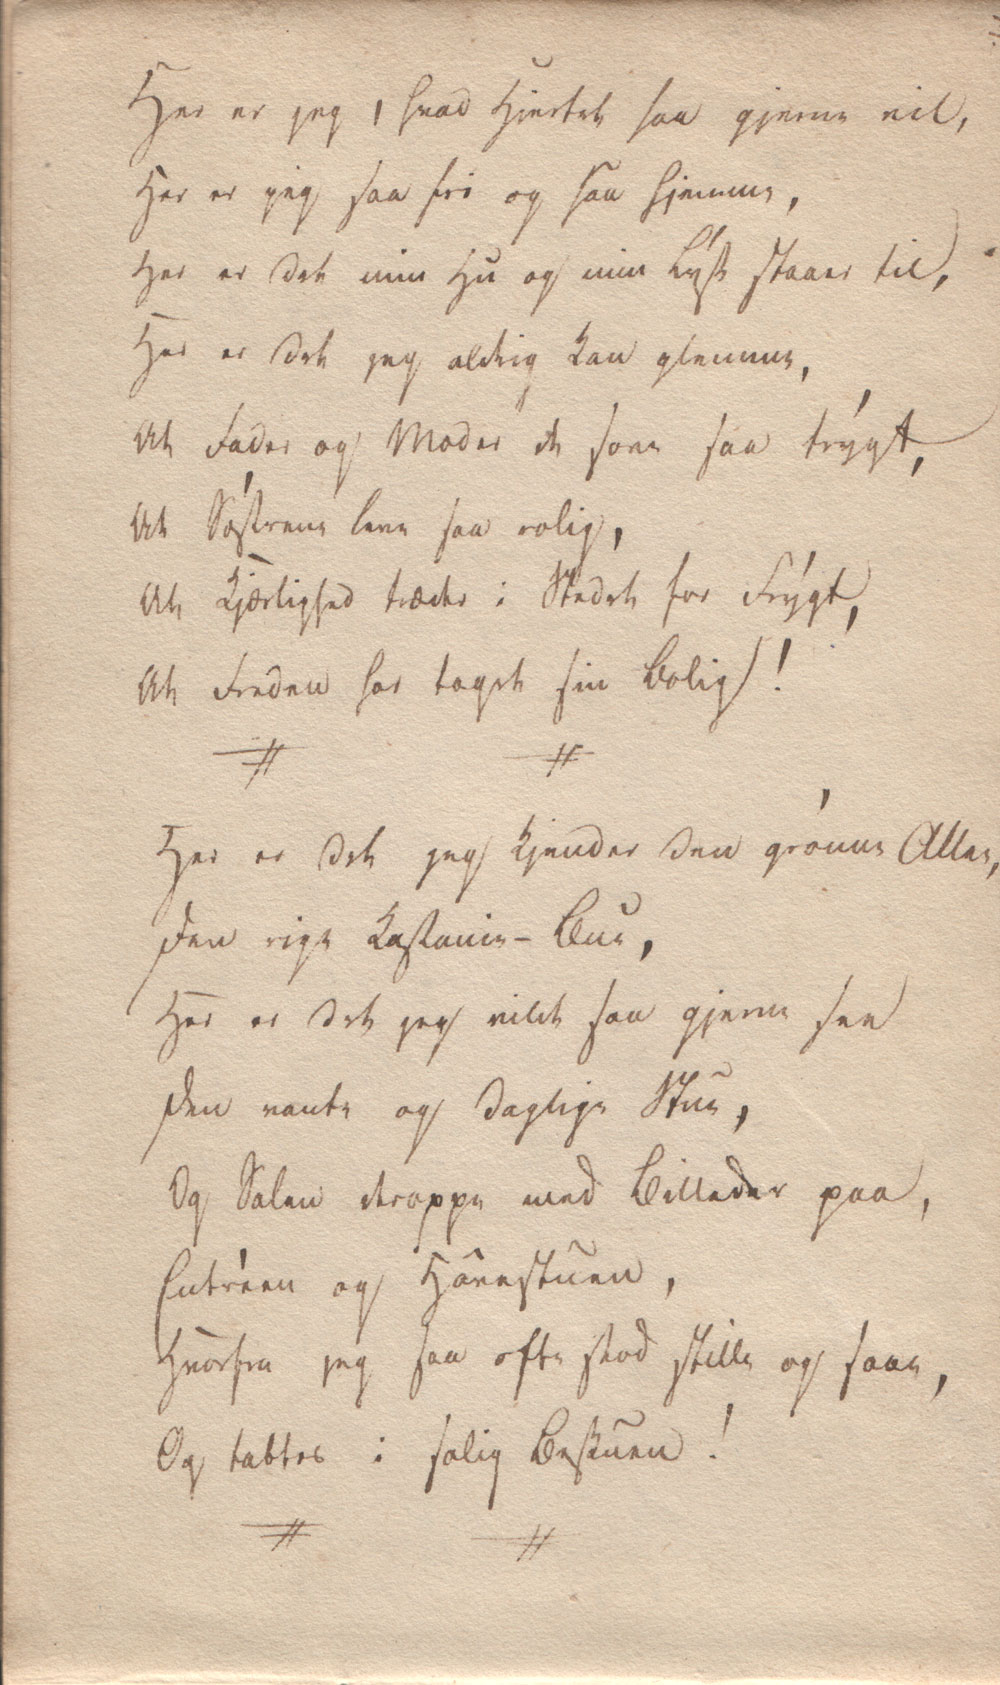 Her er jeg, hvad Hjertet saa gjerne vil,
Her er jeg saa fri og saa hjemme,
Her er det min Hu og min Lyst staaer til,
Her er det jeg aldrig kan glemme,
At Fader og Moder sove saa trygt,
At Søstrene leve saa rolig,
At Kjærlighed træder i Stedet for Frygt,
At Freden har taget sin Bolig!
Her er det jeg kjender den grønne Allee,
Den rige Kastanie-Bue,
Her er det jeg vilde saa gjerne see
Den vante og daglige Stue,
Og Salen med Billeder paa,
Entréen og Havestuen,
Hvorfra jeg saa ofte stod stille og saae,
Og tabtes i salig Beskuen!